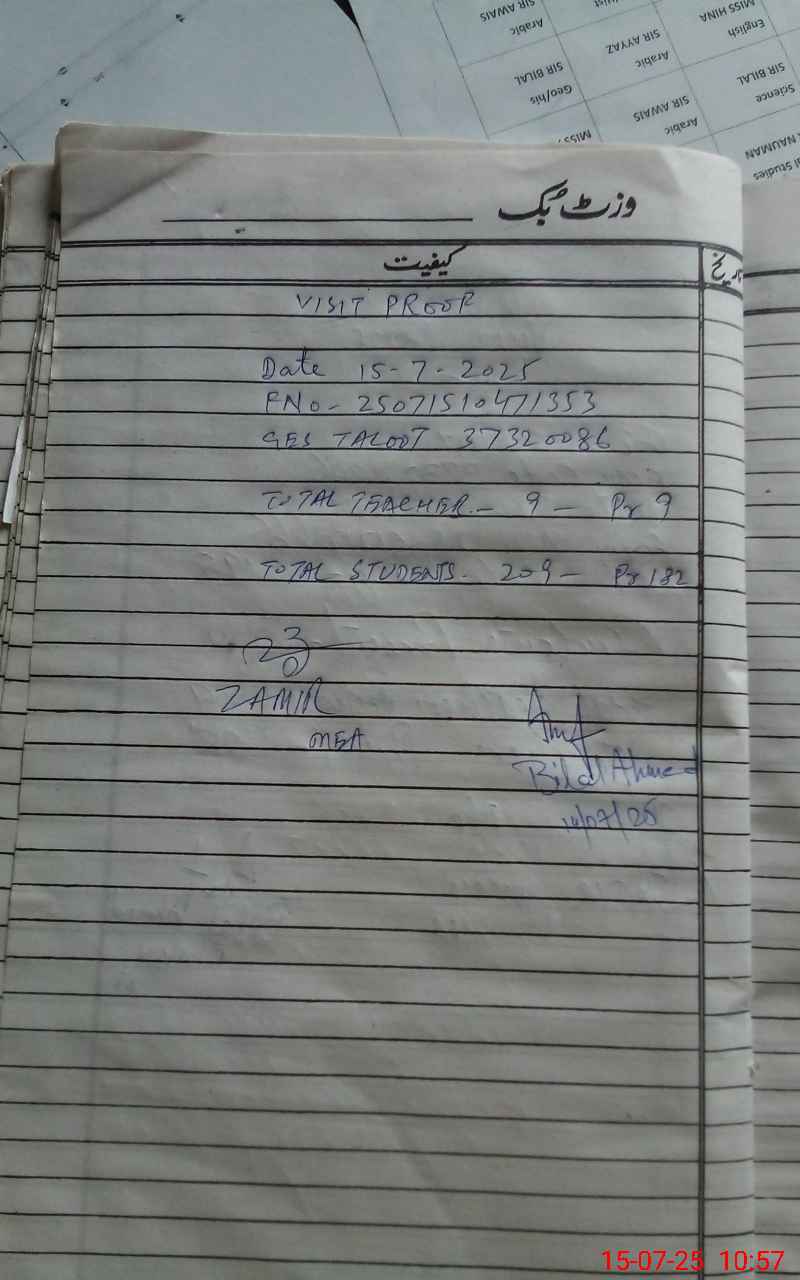 SIR AWAIS
Arabic
MISS HINA
English
SIR AYYAZ
Arabic
SIR BILAL
Geo/his
SIR BILAL
Science
SIR AWAIS
Arabic
MISS
NAUMAN
al Studies
وزٹ بُک
کیفیت
تاریخ
VISIT PROOF
Date 15-7-2025
FNo- 25071510471353
GES TALOOT 37320086
TOTAL TEACHER.- 9 - Pr 9
TOTAL STUDENTS. 209 - Pr 182
ZAMIR
MEA
Bilal Ahmed
15-07-25 10:57